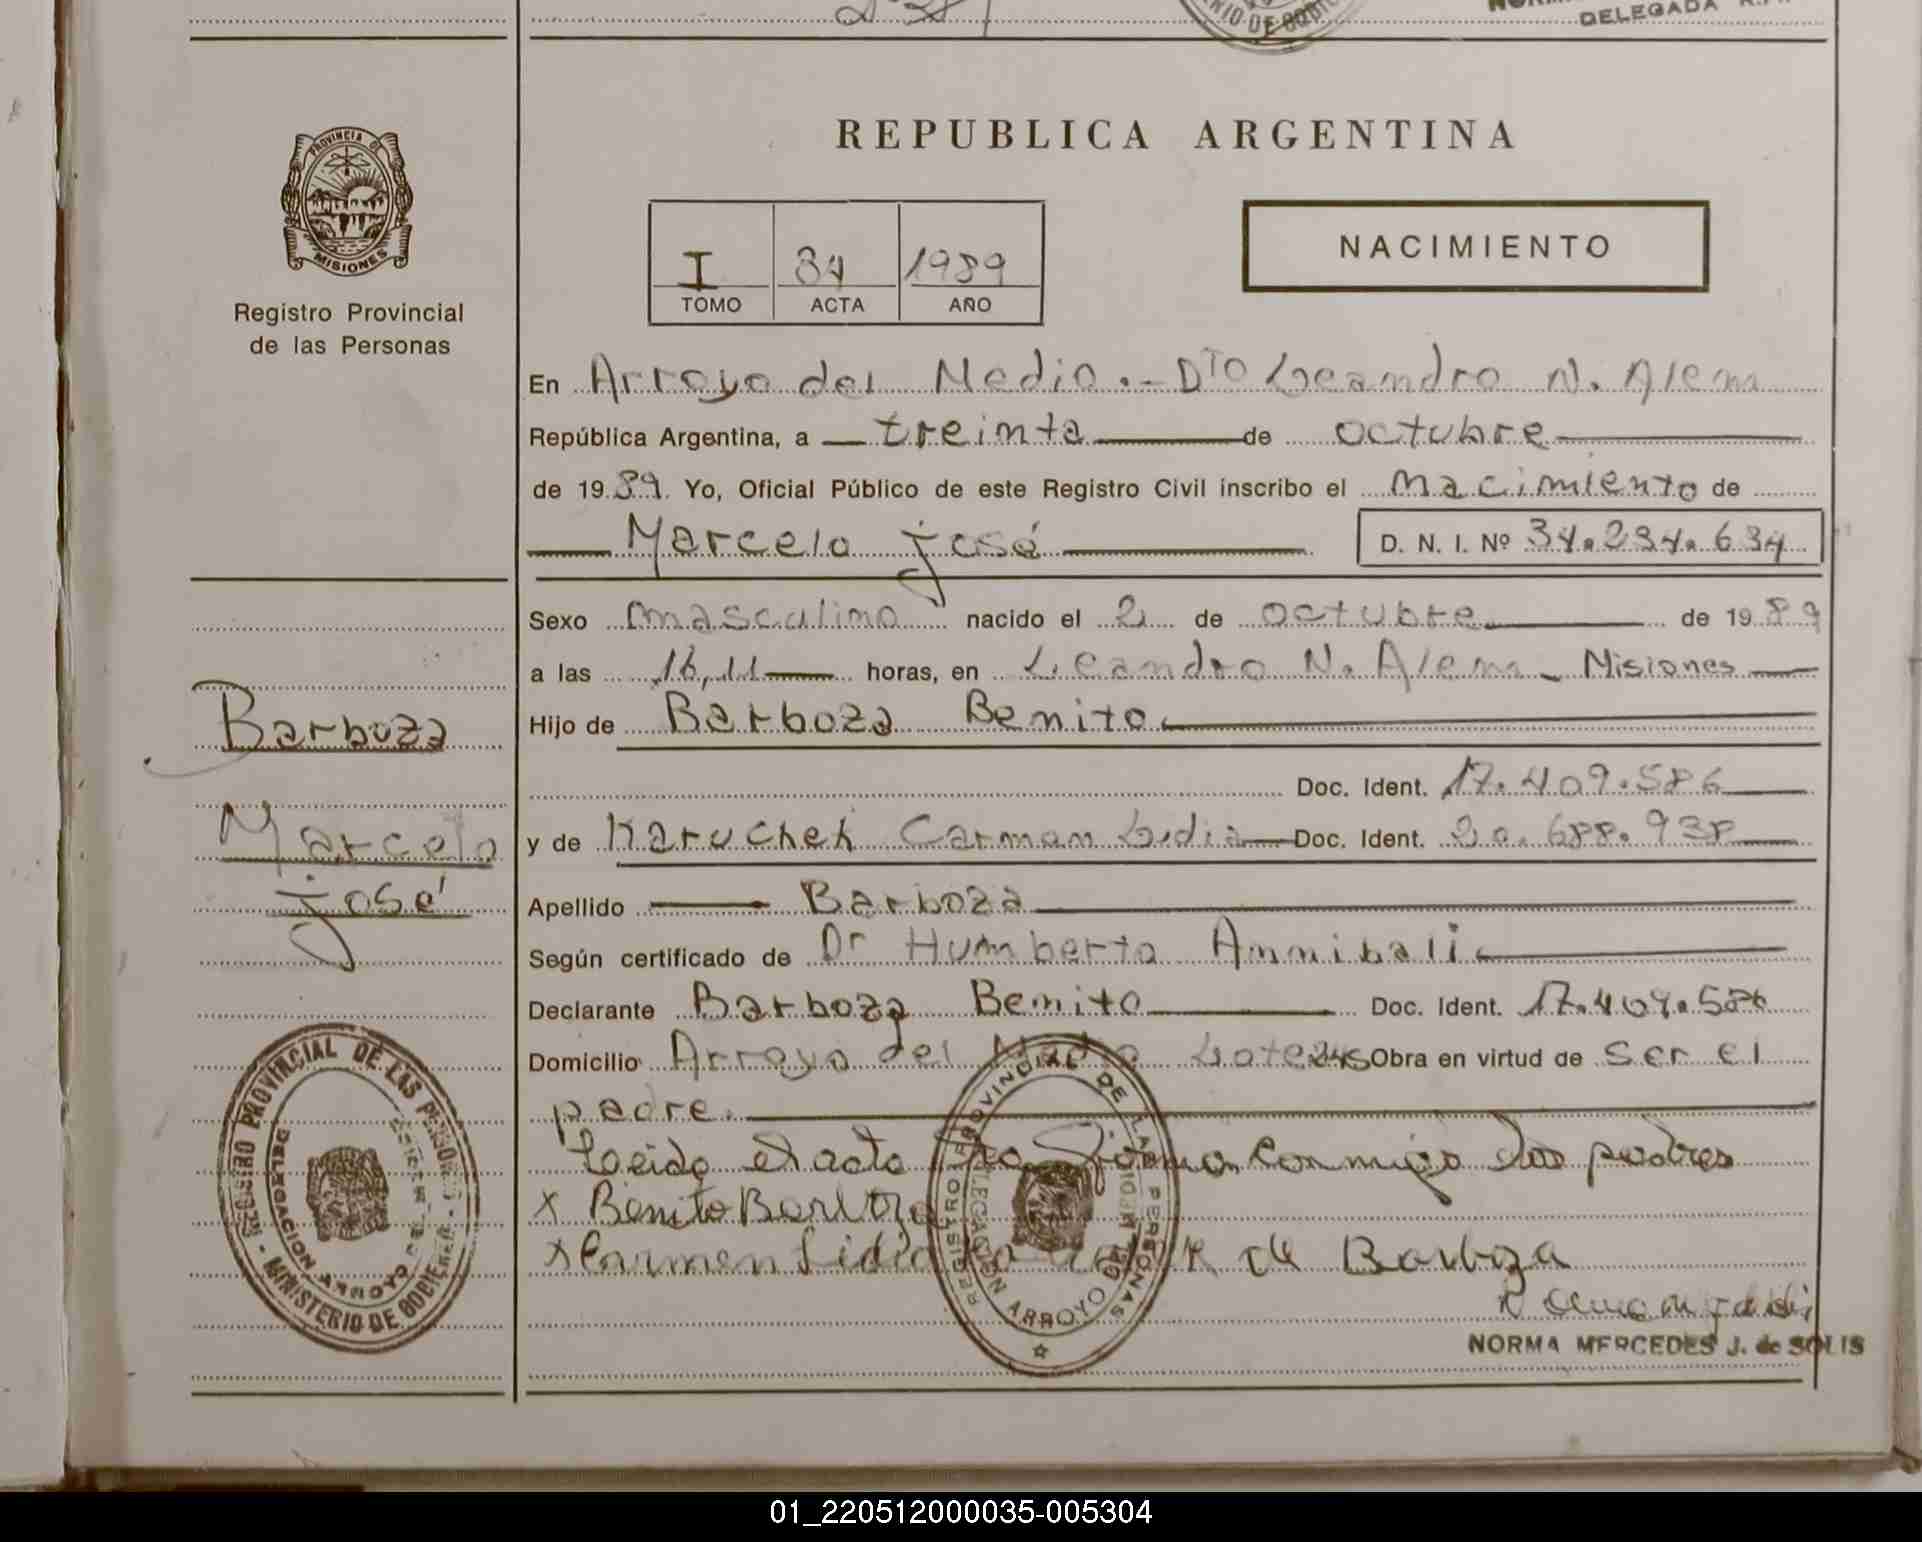 DELEGADA R.P.
REPUBLICA ARGENTINA
PROVINCIA DE
MISIONES
Registro Provincial
de las Personas
I 34 1989
TOMO ACTA AÑO
NACIMIENTO
En Arroyo del Medio.- Dto Leandro N. Alem
República Argentina, a treinta de octubre
de 1989. Yo, Oficial Público de este Registro Civil inscribo el nacimiento de
Marcelo josé D. N. I. Nº 34.234.634
Sexo masculino nacido el 2 de octubre de 1989
a las 16,11 horas, en Leandro N. Alem - Misiones
Hijo de Barboza Benito
Doc. Ident. 17.409.586
y de Karuchek Carmen Lidia Doc. Ident. 20.688.938
Apellido Barboza
Según certificado de Dr Humberto Annibali
Declarante Barboza Benito Doc. Ident. 17.409.586
Domicilio Arroyo del Medio Lote 245 Obra en virtud de ser el
padre.
Leido el acta la Firman conmigo los padres
x Benito Barboza
x Carmen Lidia de Barboza
NORMA MERCEDES J. de SOLIS
Barboza
Marcelo
josé
REGISTRO PROVINCIAL DE LAS PERSONAS - MINISTERIO DE GOBIERNO
DELEGACION ARROYO
REGISTRO PROVINCIAL DE LAS PERSONAS
DELEGACION ARROYO DEL MEDIO
01_220512000035-005304